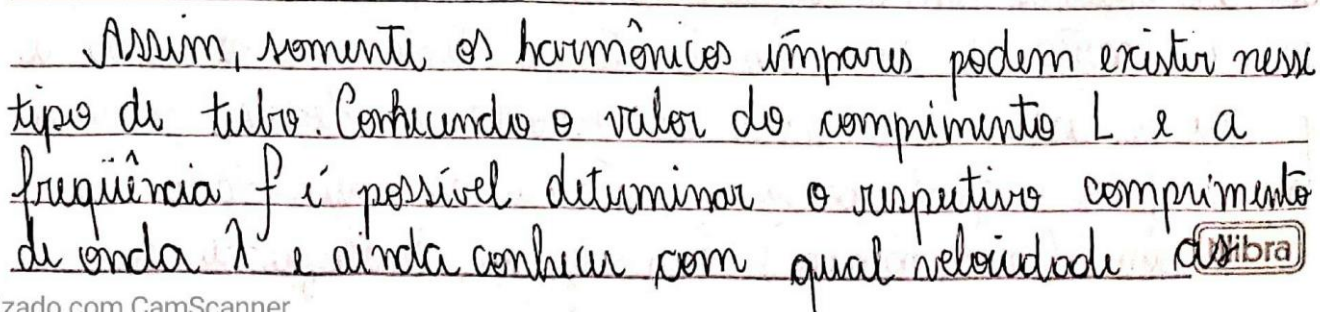 Assim, somente os harmônicos ímpares podem existir nesse
tipo de tubo. Conhecendo o valor do comprimento L e a
freqüência f é possível determinar o respectivo comprimento
de onda λ e ainda conhecer com qual velocidade as
zado com CamScanner